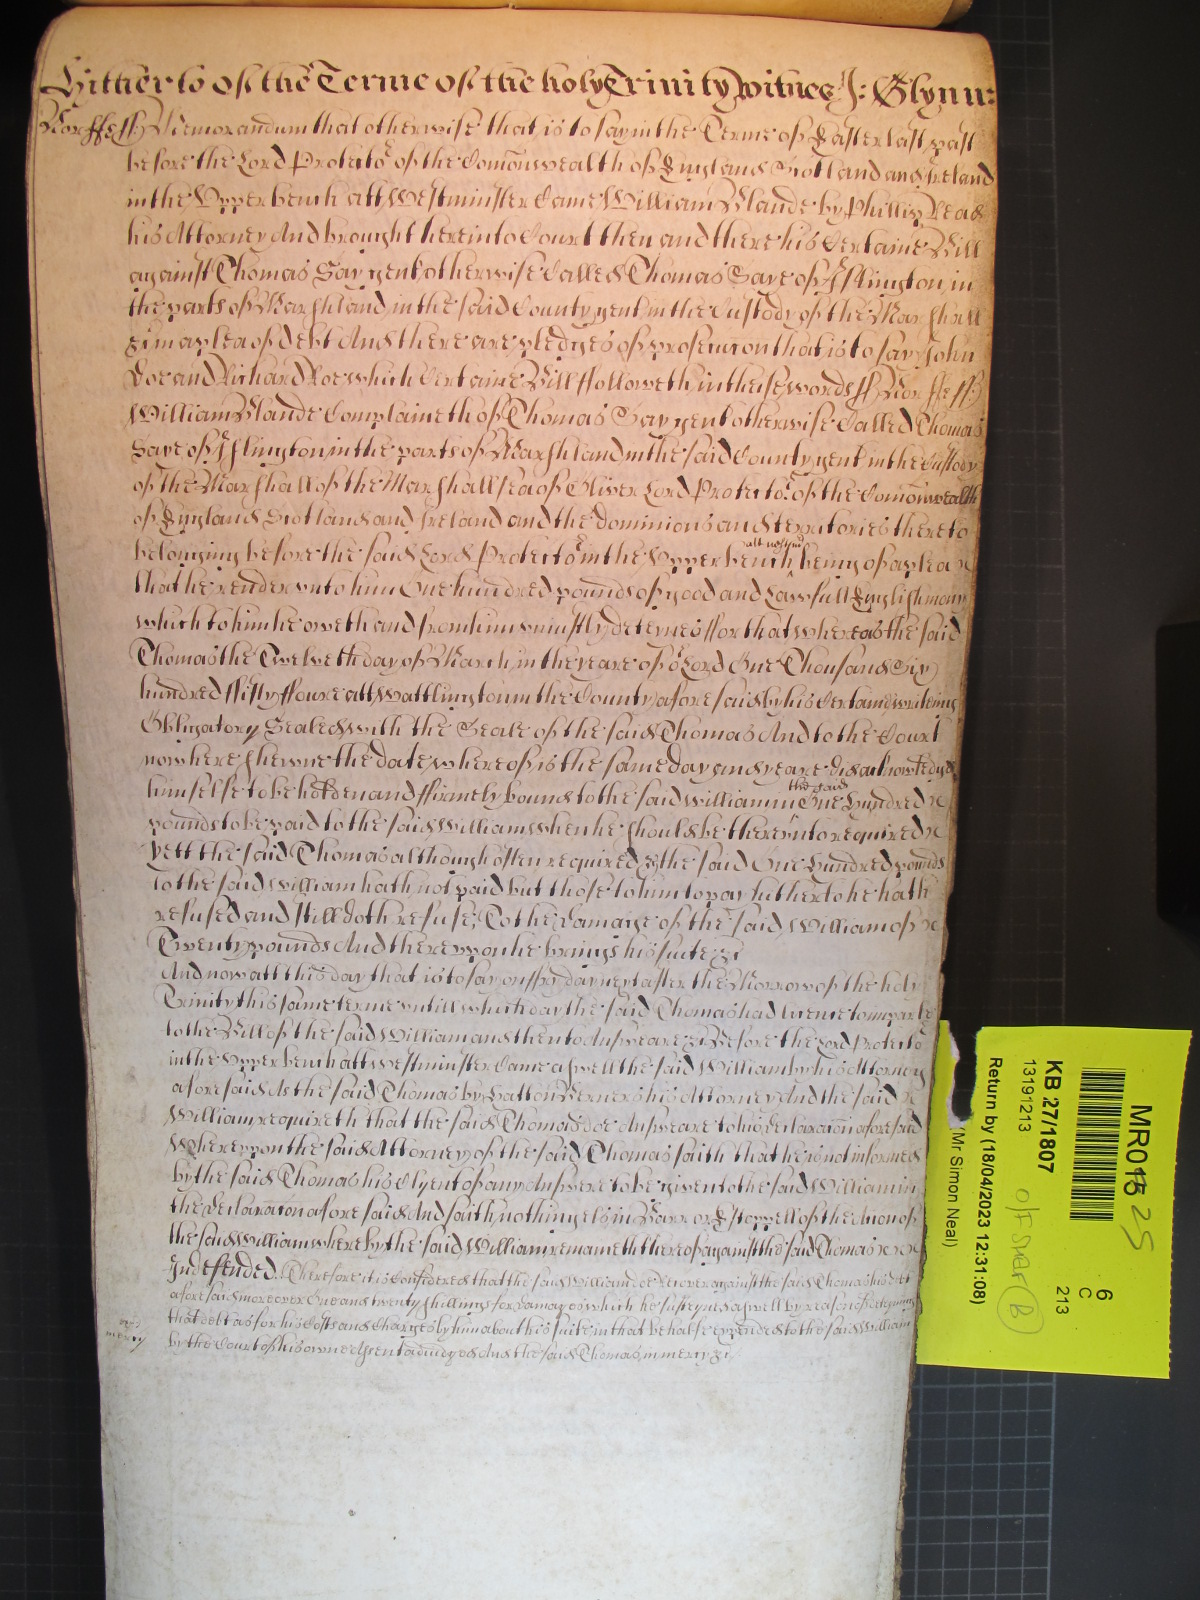 Hitherto of the Terme of the holy Trinity witnes J: Glynn:
Norff ss Memorandum that otherwise that is to say in the Terme of Easter last past
before the Lord Protector of the Comonwealth of England Scotland and Ireland
in the Vpper bench att Westminster Came William Blande by Phillip Read
his Attorney And brought here into Court then and there his Certaine Bill
against Thomas Say gent otherwise Called Thomas Saye of Islington in
the parts of Marshland in the said County gent in the Custody of the Marshall
&c in a plea of debt And there are pledges of prosecucon that is to say John
Doe and Richard Roe which Certaine Bill ffolloweth in theise words ss Norff ss
William Blande Complaineth of Thomas Say gent otherwise Called Thomas
Saye of Islington in the parts of Marshland in the said County gent in the Custody
of the Marshall of the Marshallsea of Oliver Lord Protector of the Comonwealth
of England Scotland and Ireland and the dominions and territories thereto
belonging before the said Lord Protector in the Vpper bench being of a plea
that he render vnto him One hundred pounds of good and Lawfull English mony
which to him he oweth and from him vniustly deteynes ffor that whereas the said
Thomas the Twelveth day of March in the yeare of or Lord One Thousand Six
hundred ffifty ffoure att Wattlington in the County aforesaid by his Certaine writeing
Obligatory Sealed with the Seale of the said Thomas And to the Court
now here shewne the date whereof is the same day and yeare did acknowledge
himselfe to be holden and ffirmely bound to the said William in the said One Hundred
pounds to be paid to the said William when he should be therevnto required
Yett the said Thomas although often required &c the said One Hundred pounds
To the said William hath not paid but those to him to pay hitherto he hath
refused and still doth refuse, To the Damage of the said William of
Twenty pounds And therevpon he brings his suite &c
And now att this day that is to say on ffryday next after the Morrow of the holy
Trinity this same terme vntill which day the said Thomas had licence to imparle
to the Bill of the said William and then to Answeare &c Before the Lord Protector
in the Vpper bench att Westminster Came aswell the said William by his Attorney
aforesaid As the said Thomas by Hatton Berners his Attorney And the said
William requireth that the said Thomas doe Answeare to his Declaracon aforesaid
Wherevpon the said Attorney of the said Thomas saith that he is not informed
by the said Thomas his Clyent of any Answere to be given to the said William in
the Declaracon aforesaid And saith nothing els in Barr or Estoppell of the Accon of
the said William whereby the said William remaineth thereof against the said Thomas
Vndefended. Therefore it is Considered that the said William doe Recover against the said Thomas his debt
aforesaid moreover One and twenty shillings for damages which he susteyned aswell by reason of deteyning
that debt as for his Costs and Charges by him about his suite in that behalfe expended to the said William
mercy
by the Court of his owne Assent adiudged And the said Thomas in mercy &c
MR015
25
6
C
213
KB 27/1807
13191213
Return by (18/04/2023 12:31:08)
(Mr Simon Neal)